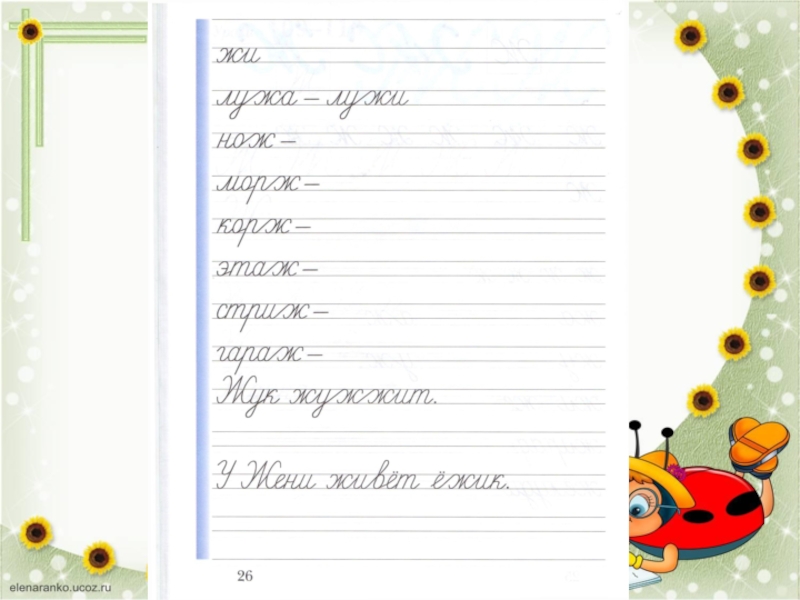 жи
лужа – лужи
нож –
морж –
корж –
этаж –
стриж –
гараж –
Жук жужжит.
У Жени живёт ёжик.
26
elenaranko.ucoz.ru